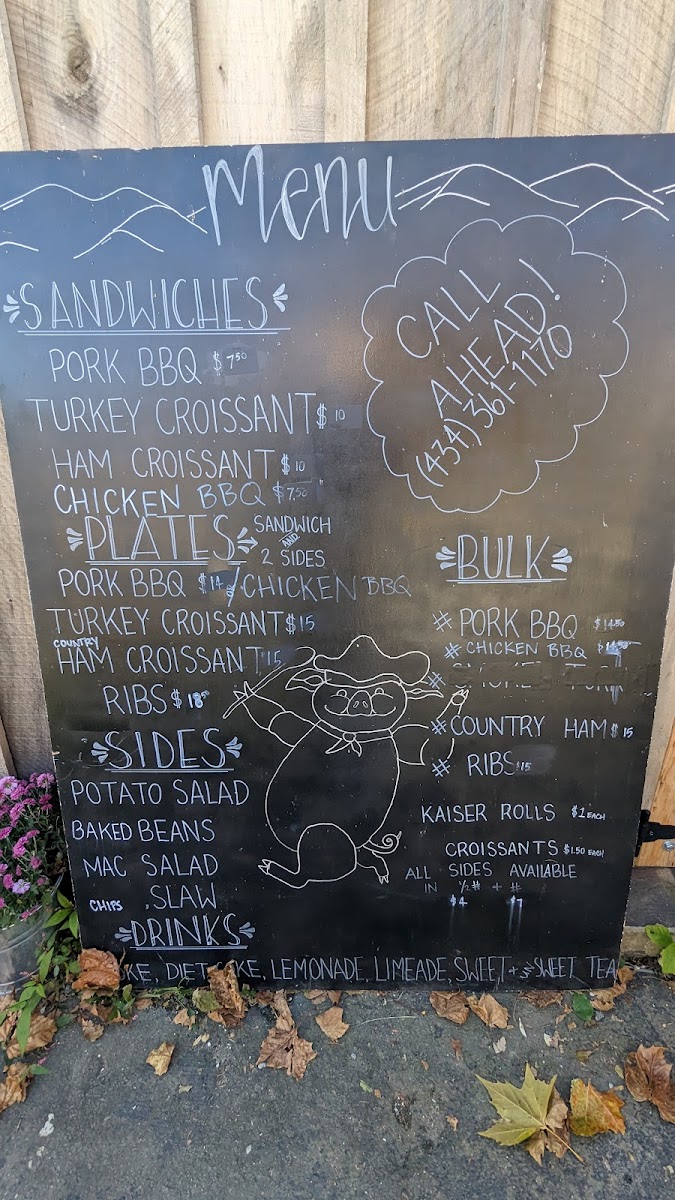 Menu
CALL
AHEAD!
(434) 361-1170
SANDWICHES
PORK BBQ $7.50
TURKEY CROISSANT $10
HAM CROISSANT $10
CHICKEN BBQ $7.50
PLATES SANDWICH AND 2 SIDES
PORK BBQ $14 / CHICKEN BBQ
TURKEY CROISSANT $15
COUNTRY
HAM CROISSANT 15
RIBS $18
SIDES
POTATO SALAD
BAKED BEANS
MAC SALAD
CHIPS SLAW
DRINKS
KE, DIET KE, LEMONADE, LIMEADE, SWEET + UNSWEET TEA
BULK
# PORK BBQ $14.50
# CHICKEN BBQ
#
# COUNTRY HAM $15
# RIBS $15
KAISER ROLLS $1 EACH
CROISSANTS $1.50 EACH
ALL SIDES AVAILABLE
IN 1/2# + #
$4 $7